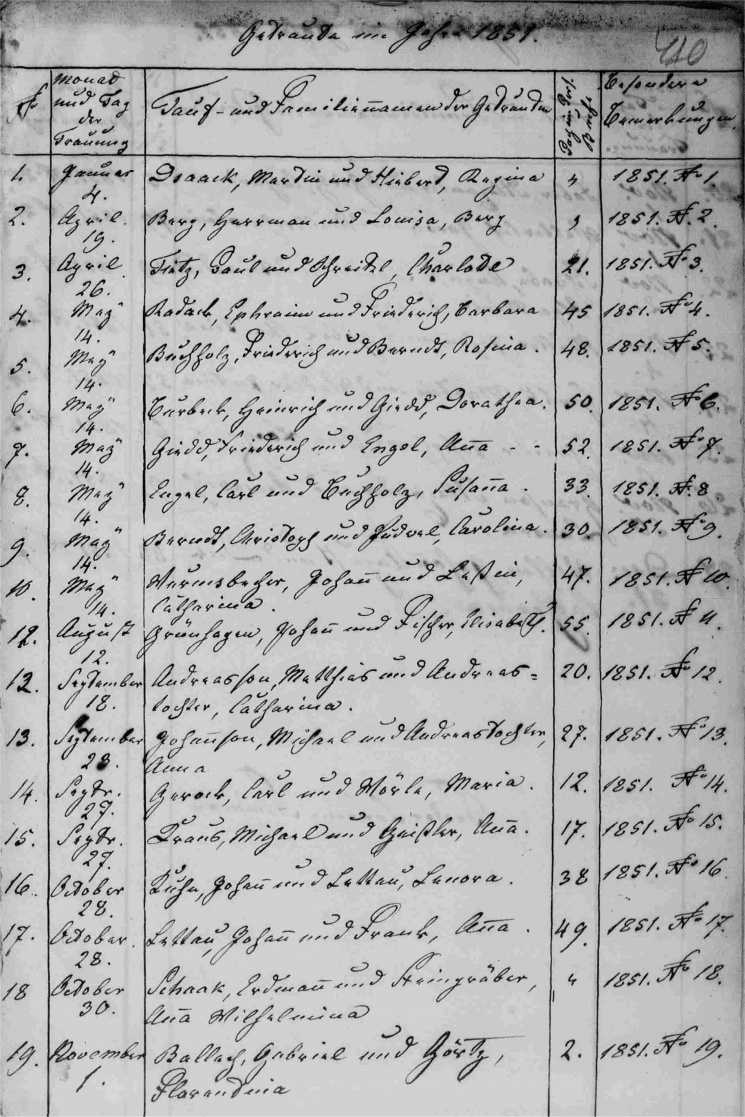 Getraute im Jahre 1851.
410
№
Monat
und Tag
der
Trauung
Tauf- und Familiennamen der Getrauten
Besondere
Bemerkungen
1. Januar Draack, Martin und Hiebert, Regina " 1851. № 1.
4.
2. April. Berg, Herrman und Louisa, Berg " 1851. № 2.
19.
3. April Tietz, Paul und Schreitel, Charlotte 21. 1851. № 3.
26.
4. May Radack, Ephraim und Friederich, Barbara 45 1851. № 4.
14.
5. May Buchholz, Friederich und Berndt, Rosina. 48. 1851. № 5.
14.
6. May Burbeck, Heinrich und Giedd, Dorathea. 50. 1851. № 6.
14.
7. May Giedd, Friederich und Engel, Anna - - 52. 1851. № 7.
14.
8. May Engel, Carl und Buchholz, Susanna 33. 1851. №. 8
14.
9. May Berndt, Christoph und Judvel, Carolina. 30. 1851. № 9.
14.
10. May Wurmsbecher, Johann und Leßin, 47. 1851. № 10.
14. Catharina.
12. August Grünhagen, Johann und Fischer, Elisabeth. 55. 1851. № 11.
12.
12. September Andreasson, Matthias und Andreas= 20. 1851. № 12.
18. tochter, Catharina.
13. September Johannson, Michael und Andreastochter, 27. 1851. № 13.
23. Anna
14. Septr. Gerock, Carl und Wörle, Maria. 12. 1851. № 14.
27.
15. Septr. Kraus, Michael und Geißler, Anna. 17. 1851. № 15.
27.
16. October Kuhn, Johann und Lettau, Lenora. 38 1851. № 16.
28.
17. October. Lettau, Johann und Frank, Anna. 49. 1851. № 17.
28.
18 October Schaak, Erdmann und Steingräber, " 1851. № 18.
30. Anna Wilhelmina
19. November Ballach, Gabriel und Görtz, 2. 1851. № 19.
1. Florendina